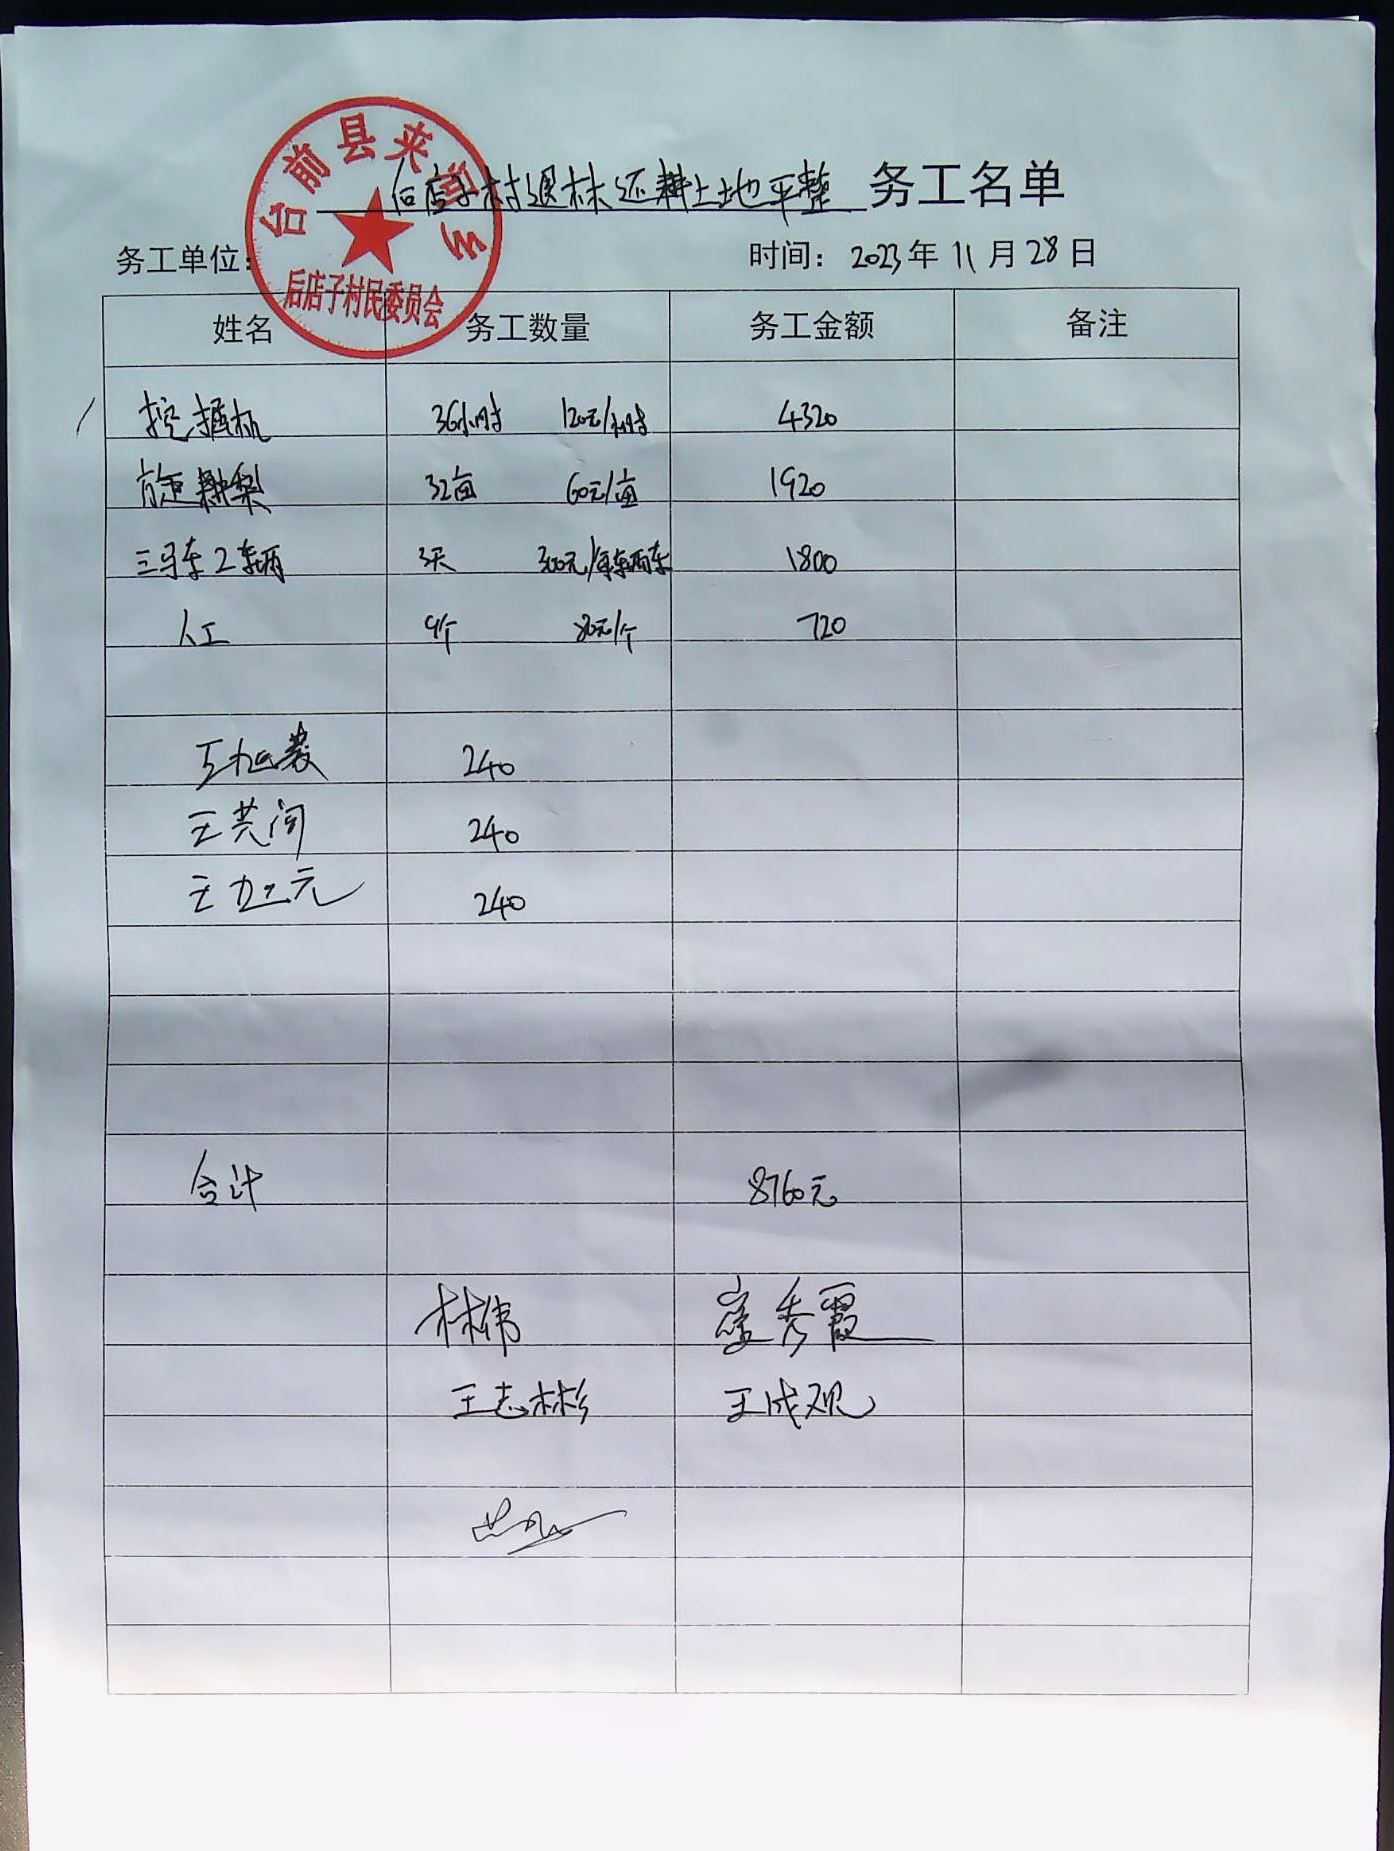 台前县夹河乡
后店子村民委员会
后店子村退林还耕土地平整 务工名单
务工单位: 时间: 2023年11月28日
姓名 务工数量 务工金额 备注
挖掘机 36小时 120元/小时 4320
32亩 60元/亩 1920
三马车2车辆 3天 300元/ 1800
人工 9个 80元/个 720
240
240
240
合计 8760元
林伟 寇秀霞
王志彬 王成观